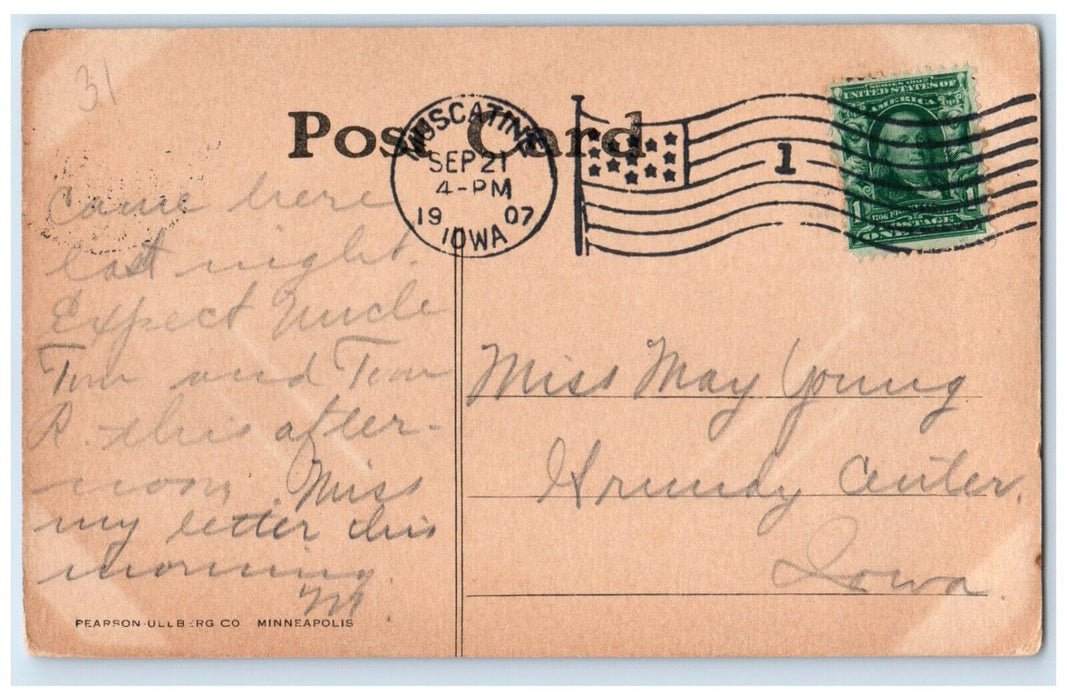 31
Post Card
MUSCATINE
SEP 21
4-PM
19 07
IOWA
1
SERIES 1902
UNITED STATES OF
AMERICA
1 1
POSTAGE
ONE
Came here
last night.
Expect Uncle
Tom and Tom
R. this after-
noon. Miss
my letter this
morning.
M.
Miss May Young
Grundy Center.
Iowa.
PEARSON-ULLBERG CO MINNEAPOLIS